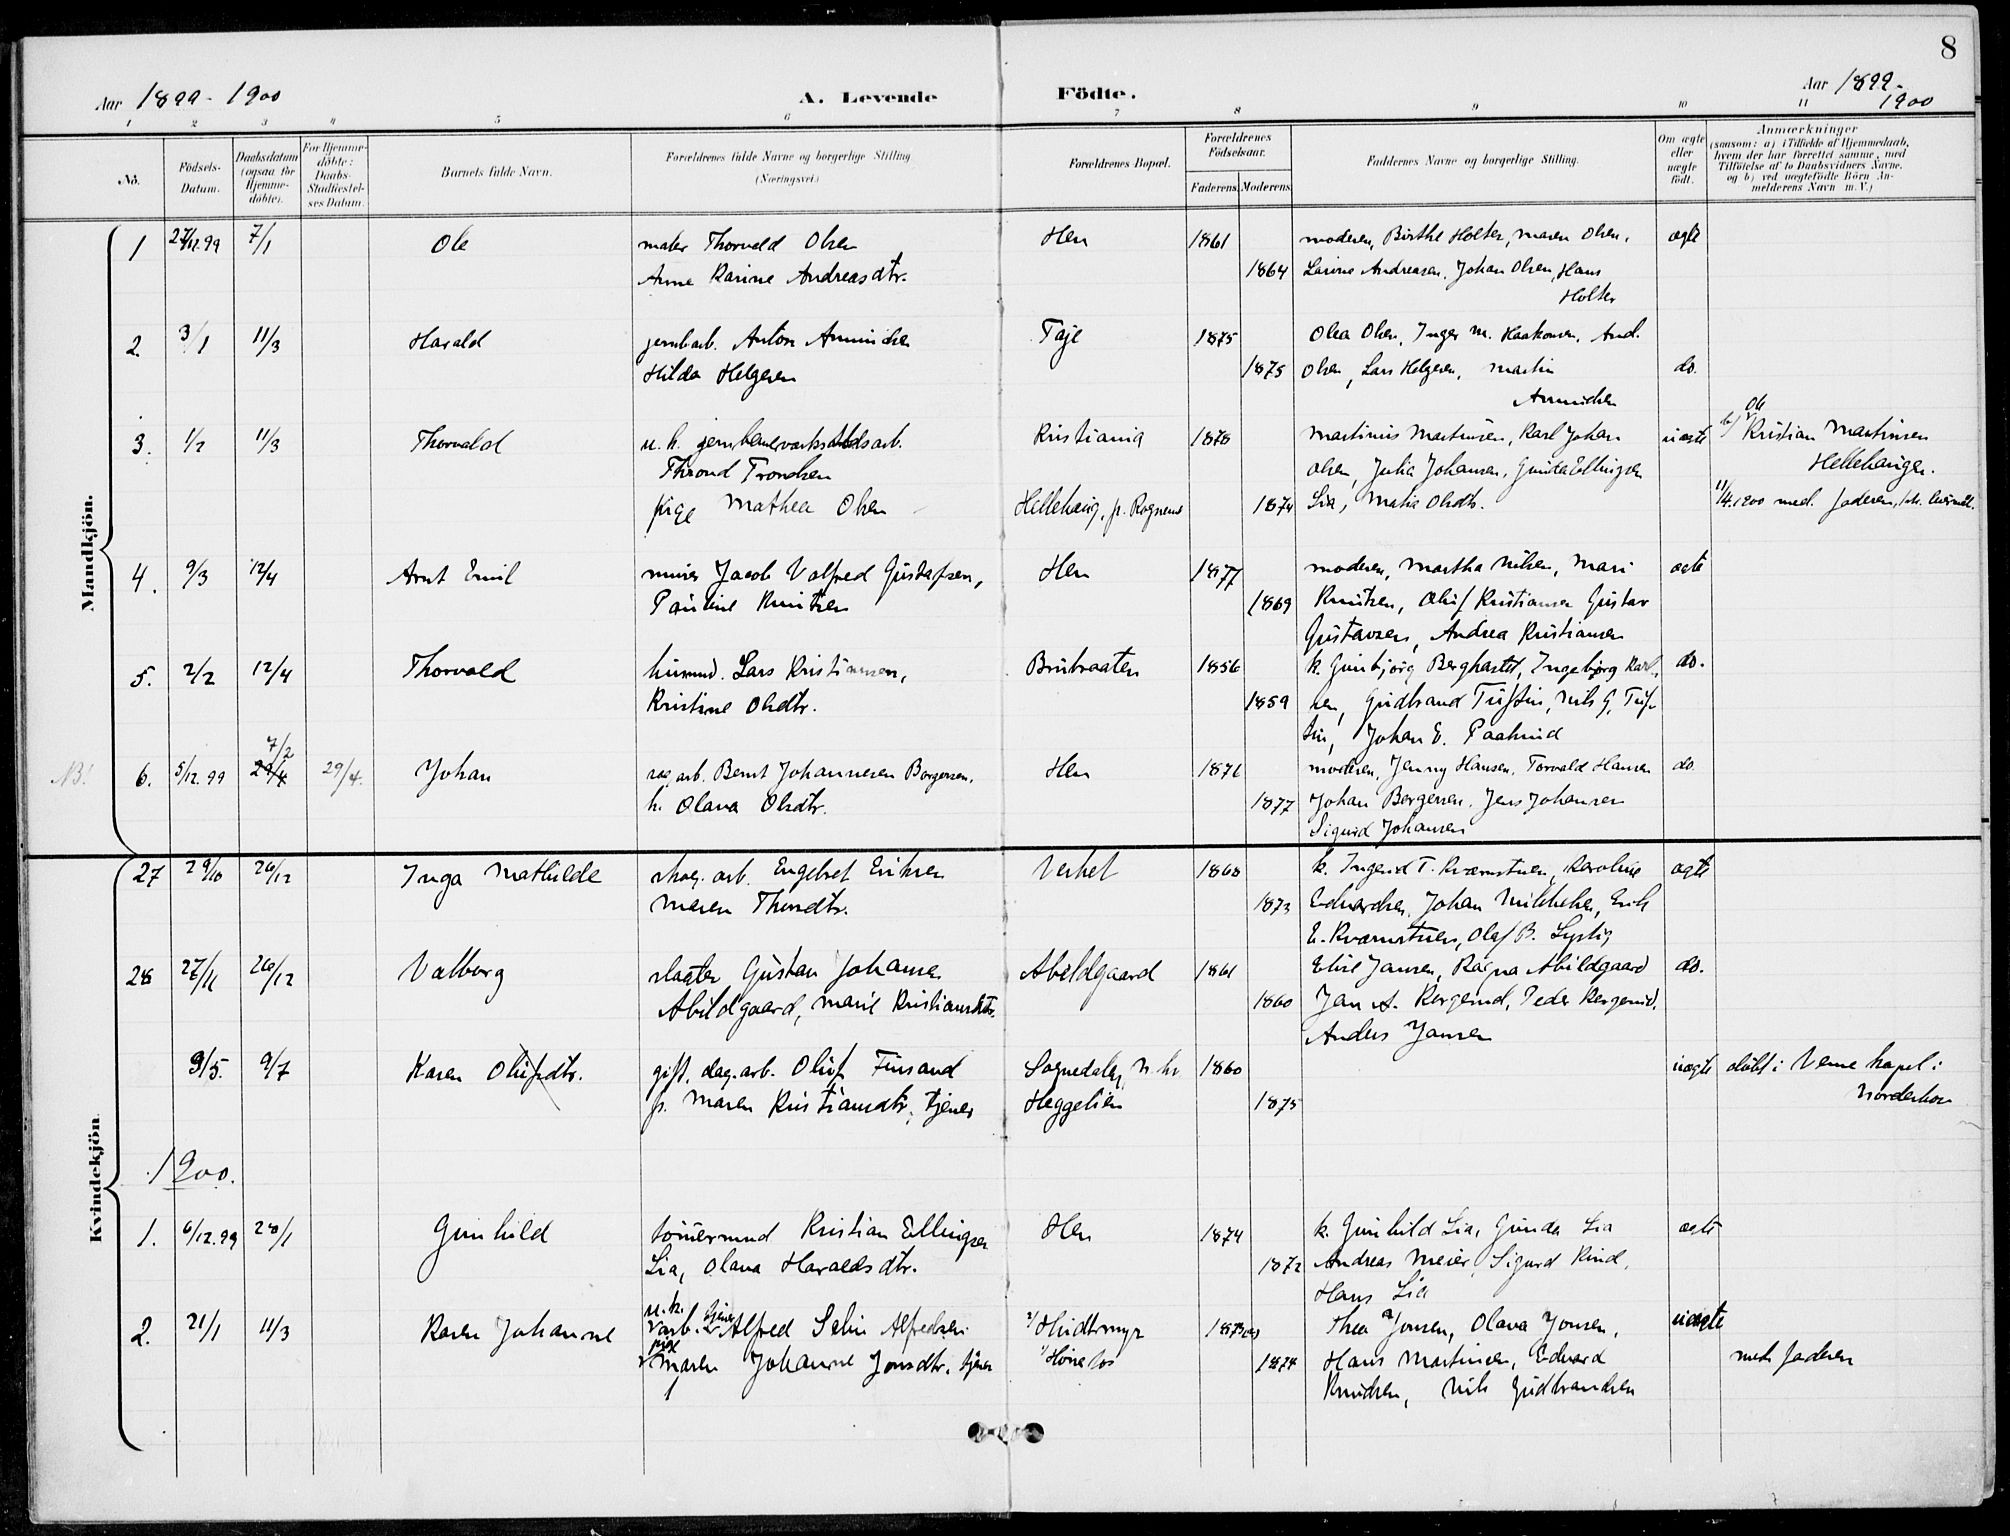 8
Aar 1899-1900
A. Levende Födte.
Aar 1899-
1900
1 2 3 4 5 6 7 8 9 10 11
No.
Födsels-
Datum.
Daabsdatum
(ogsaa for
Hjemme-
döbte).
For Hjemme-
döbte:
Daabs-
Stadfæstel-
ses Datum.
Barnets fulde Navn.
Forældrenes fulde Navne og borgerlige Stilling
(Næringsvei.)
Forældrenes Bopæl.
Forældrenes
Födselsaar.
Faderens. Moderens.
Faddernes Navne og borgerlige Stilling.
Om ægte
eller
uægte
födt.
Anmærkninger
(saasom: a) i Tilfælde af Hjemmedaab,
hvem der har forrettet samme, med
Tilföielse af to Daabsvidners Navne.
og b) ved uægtefödte Börn An-
melderens Navn m. V.)
Mandkjön.
1 27/12.99 7/1 Ole
Thorvald Olsen
Anne Karine Andreasdtr.
Hen 1861
1864
moderen, Birthe Holter, Maren Olsen,
Andreasen, Johan Olsen, Hans
Holter
ægte
2. 3/1 11/3 Harald
jernb.arb. Anton
Hilda Helgesen
1875
1875
Olea Olsen, Inger M. Haakonsen, And.
Olsen, Lars Helgesen, Martin
do.
3. 1/2 11/3 Thorvald
u. k.
Trond Trondsen
pige Mathea Olsen
Kristiania 1878
1874
Martinius Martinsen, Karl Johan
Olsen, Julia Johansen, Gunda Ellingsen
Lia, Olsdtr.
uægte
b) Ole Kristian Martinsen
Hellehaugen.
11/4.1900 med. faderen
4. 9/3 12/4 Arnt Emil
murer Jacob Valfred Gustafsen,
Pauline Knutsen
Hen 1877
1869
moderen, Martha Nilsen, Mari
Knutsen, Oluf Kristiansen Gustav
Gustavsen, Andrea Kristiansen
ægte
5. 2/2 12/4 Thorvald
husmd. Lars Kristiansen,
Kristine Olsdtr.
Brubraaten 1856
1859
k. Gunbjørg BerghaStet, Ingebjørg Karl-
sen, Gudbrand Tuftin, Nils G. Tuf-
tin, Johan E. Paalerud
do.
NB! 6. 5/12.99 7/2 29/4 29/4. Johan
sag.arb. Bernt Johannesen Borgersen,
h. Olava Olsdtr.
Hen 1876
1877
moderen, Jenny Hansen, Torvald Hansen
Johan Borgersen, Jens Johansen
Sigurd Johansen
do
Kvindekjön
27 29/10 26/12 Inga Mathilde
skog. arb. Engebret Eriksen
Maren Thorsdtr.
Verket 1868
1873
k. Ingerid T. Kværnstuen, Karoline
Edvardsen, Johan Mikkelsen, Erik
E. Kværnstuen, Olaf B. Lystig
ægte
28 27/11 26/12 Valborg
slagter Gustav Johansen
Abildgaard, Marie Kristiansdtr.
Abildgaard 1861
1860
Elise Jansen, Ragna Abildgaard
Jan A. Bergerud, Peder Bergerud,
Anders Jansen
do.
9/5. 9/7 Karen Olufsdtr.
gift. dag.arb. Oluf Finsand
p. Maren Kristiansdtr. tjener
Sognedalen
Heggelien
1860
1875
uægte
döbt i Veme kapel i
Norderhov
1900.
1. 6/12.99 28/1 Gunhild
tömmermd Kristian Ellingsen
Lia, Olava Haraldsdtr.
Hen 1874
1872
k. Gunhild Lia, Gunda Lia
Andreas Meier, Sigurd Rind,
Hans Lia
ægte
2. 21/1 11/3 Karen Johanne
u. k.
arb. tjener Alfred Alfredsen
pige Maren Johanne Jonsdtr. tjener
Hønefos
1874
Thea Jonsen, Olava Jonsen,
Hans Martinsen, Edvard
Knudsen, Nils Gudbrandsen
uægte
meds. faderen